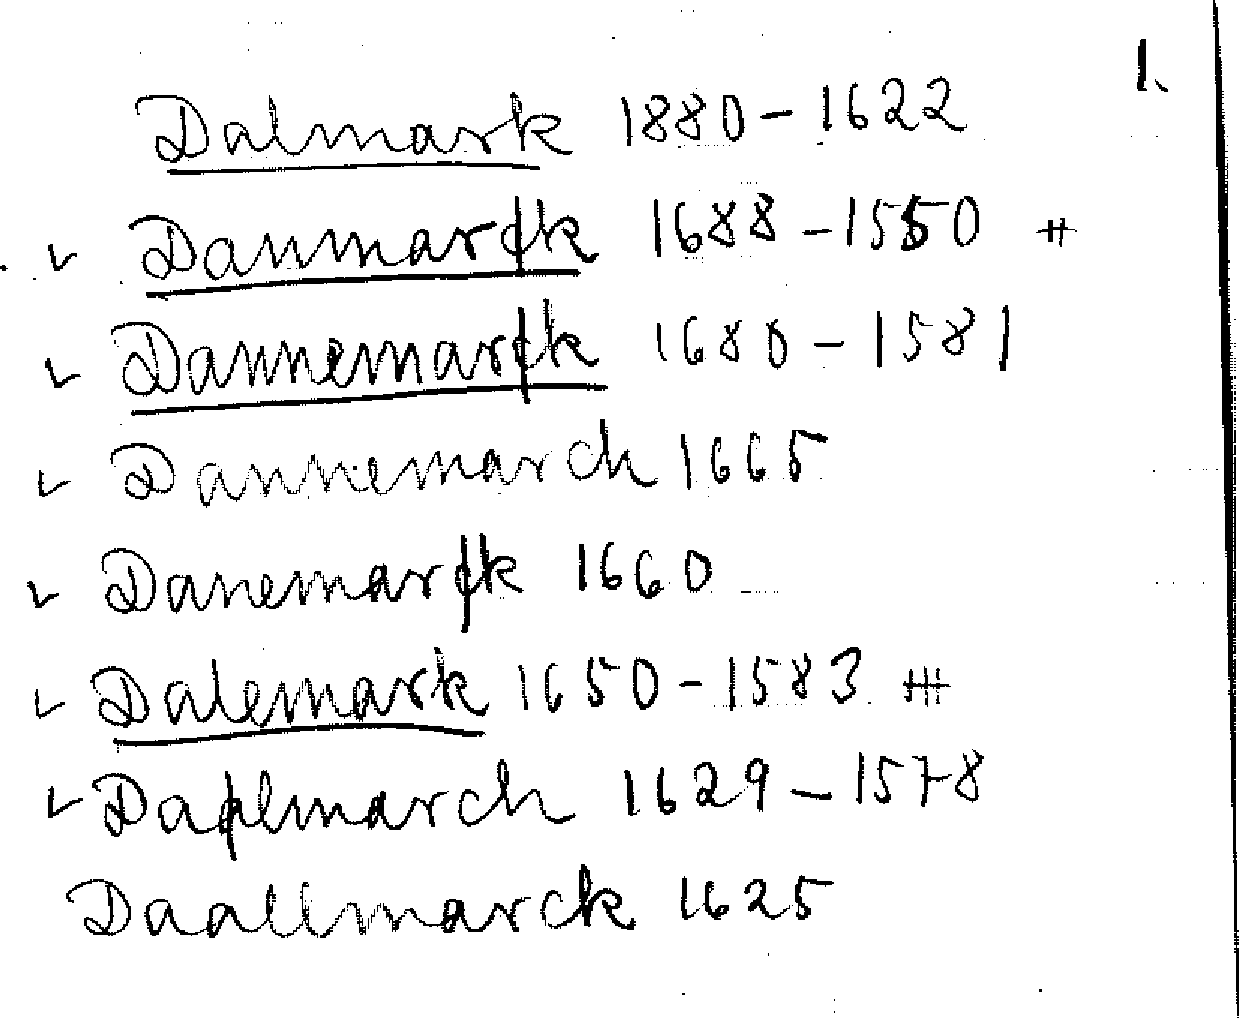 1.
Dalmark 1880-1622
✓ Danmarck 1688-1550 #
✓ Dannemarck 1680-1581
✓ Dannemarch 1665
✓ Danemarck 1660
✓ Dalemark 1650-1583
✓ Dahlmarch 1629-1578
Daallmarck 1625